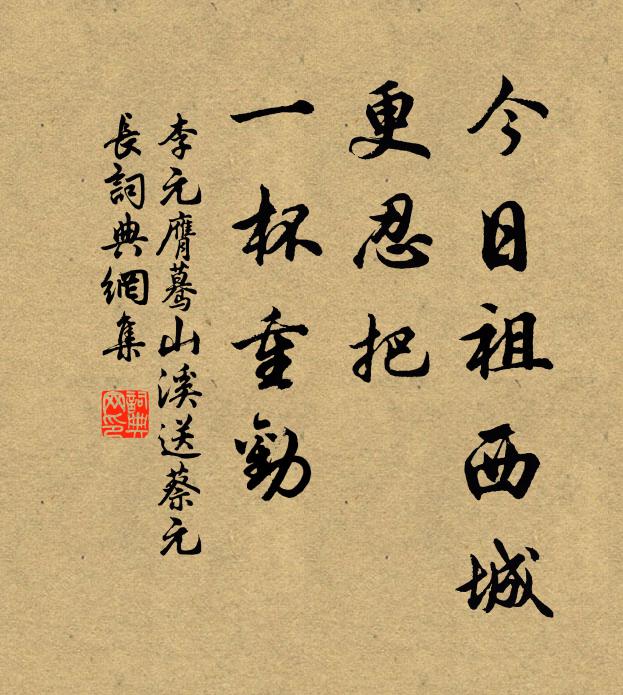 今日祖西城
更忍把
一杯重勸
李元膺驀山溪送蔡元
長詞典網集
詞典网印